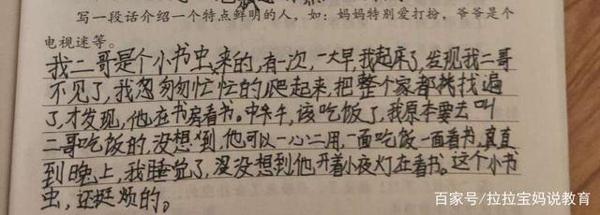 写一段话介绍一个特点鲜明的人，如：妈妈特别爱打扮，爷爷是个
电视迷等。
我二哥是个小书虫来的，有一次，一大早，我起床了，发现我二哥
不见了，我匆匆忙忙的爬起来，把整个家都找遍
了，才发现，他在书房看书。中午，该吃饭了，我原本要去叫
二哥吃饭的，没想到，他可以一心二用，一面吃饭一面看书，直
到晚上，我睡觉了，没想到他开着小夜灯在看书。这个小书
虫，还挺烦的。
百家号/拉拉宝妈说教育